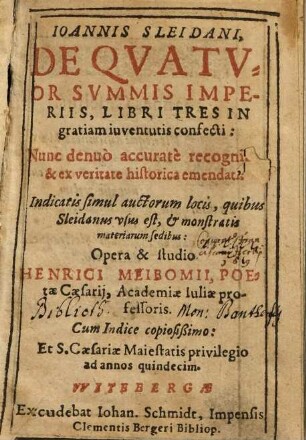 IOANNIS SLEIDANI,
DE QVATV-
OR SVMMIS IMPE-
RIIS, LIBRI TRES IN
gratiam iuventutis confecti:
Nunc denuò accuratè recogni
& ex veritate historica emendati.
Indicatis simul auctorum locis, quibus
Sleidanus vsus est, & monstratis
materiarum sedibus:
Opera & studio
HENRICI MEIBOMII, POE-
tæ Cæsarij, Academiæ Iuliæ pro-
fessoris.
Biblioth. Mon:
Cum Indice copiosissimo:
Et S. Cæsariæ Maiestatis privilegio
ad annos quindecim.
WITEBERGÆ
Excudebat Iohan. Schmidt, Impensis
Clementis Bergeri Bibliop.